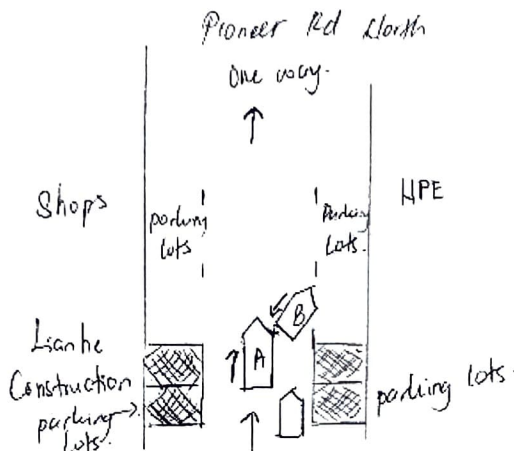 Pioneer Rd North
One way.
Shops
parking
lots
Parking
lots.
HPE
B
A
Lianhe
Construction
parking
lots.
parking lots.